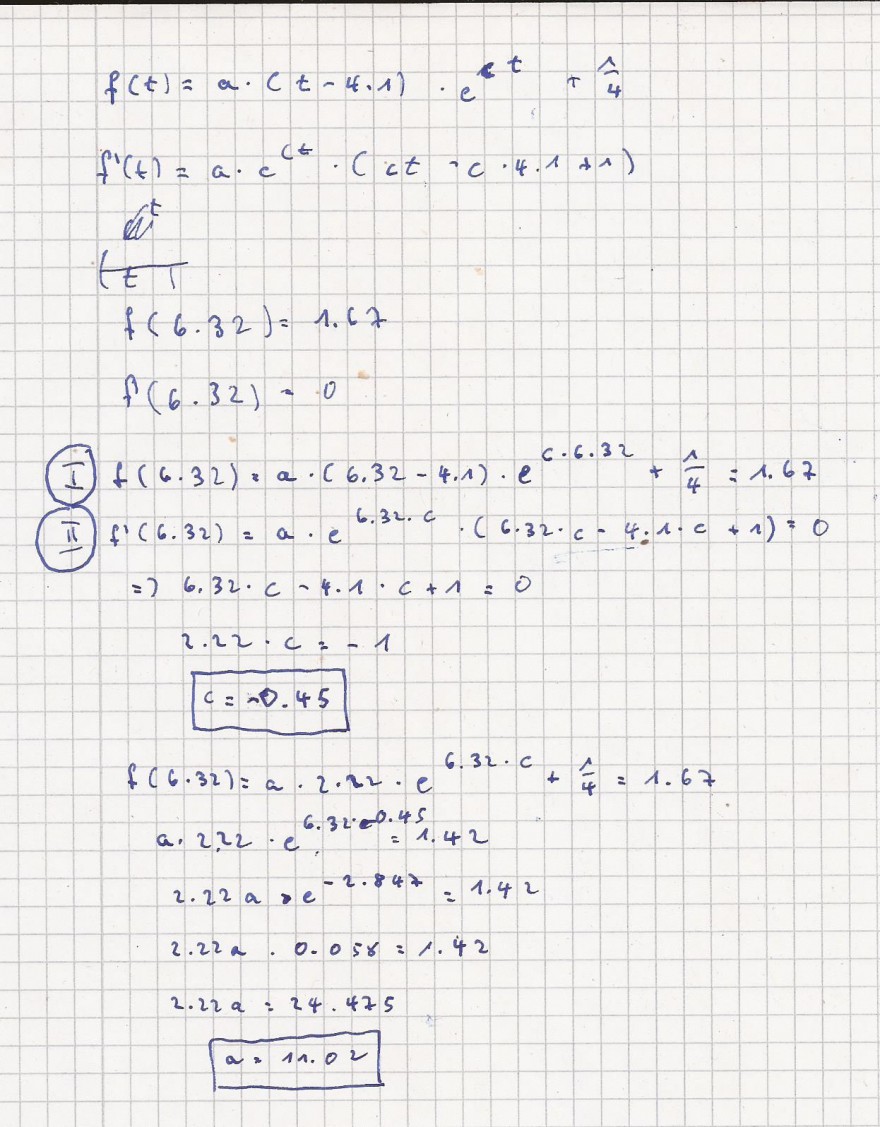 f(t) = a · (t - 4.1) · e^{ct} + 1/4
f'(t) = a · e^{ct} · (ct - c · 4.1 + 1)
t
(t
f(6.32) = 1.67
f'(6.32) = 0
I f(6.32) = a · (6.32 - 4.1) · e^{c·6.32} + 1/4 = 1.67
II f'(6.32) = a · e^{6.32·c} · (6.32·c - 4.1·c + 1) = 0
=> 6.32·c - 4.1·c + 1 = 0
2.22 · c = -1
c = -0.45
f(6.32) = a · 2.22 · e^{6.32·c} + 1/4 = 1.67
a · 2.22 · e^{6.32·-0.45} = 1.42
2.22a · e^{-2.847} = 1.42
2.22a · 0.058 = 1.42
2.22a = 24.475
a = 11.02